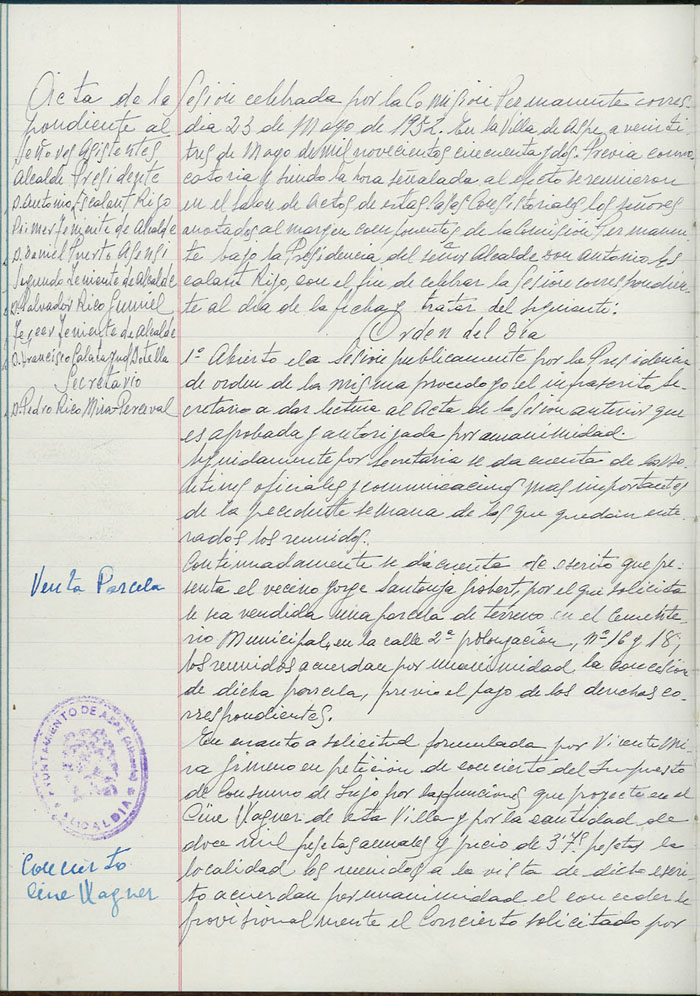 Acta de la Sesion celebrada por la Comision Permanente corres-
pondiente al dia 23 de Mayo de 1952. En la Villa de Aspe, a veinti-
Señores Asistentes
tres de Mayo de mil novecientos cincuenta y dos. Previa convo-
Alcalde Presidente
catoria y siendo la hora señalada al efecto se reunieron
D. Antonio Escalant Rigo
en el salon de Actos de estas Casas Consistoriales los señores
Primer Teniente de Alcalde
anotados al margen componentes de la Comision Permanen-
D. Daniel Puerto Asensi
te bajo la Presidencia del señor Alcalde Don Antonio Es-
Segundo Teniente de Alcalde
calant Rigo, con el fin de celebrar la Sesion correspondien-
D. Salvador Rico Gumiel
te al dia de la fecha y tratar del siguiente:
Tercer Teniente de Alcalde
Orden del Dia
D. Francisco Calatayud Botella
1º Abierto el a Sesion publicamente por la Presidencia
Secretario
de orden de la misma procedo yo el infrascrito Se-
D. Pedro Rico Mira-Perceval
cretario a dar lectura al Acta de la Sesion anterior que
es aprobada y autorizada por unanimidad
Seguidamente por Secretaria se da cuenta de los Bo-
letines oficiales y comunicaciones mas importantes
de la precedente semana de los que quedan ente-
rados los reunidos.
Continuadamente se da cuenta de escrito que pre-
Venta Parcela
senta el vecino Jorge Santonja Gisbert, por el que solicita
le sea vendida una parcela de terreno en el Cemente-
rio Municipal, en la calle 2ª prolongación, nº 16 y 18,
los reunidos acuerdan por unanimidad la concesion
de dicha parcela, previo el pago de los derechos co-
rrespondientes.
AYUNTAMIENTO DE ASPE (Alicante)
ALCALDIA
En cuanto a solicitud formulada por Vicente Mi-
ra Gimeno en peticion de concierto del Impuesto
de Consumo de Lujo por las funciones que proyecte en el
Cine Wagner de esta Villa y por la cantidad de
doce mil pesetas anuales y precio de pesetas la
Concierto
localidad los reunidos a la vista de dicho escri-
Cine Wagner
to acuerdan por unanimidad el conceder le
provisionalmente el Concierto solicitado por